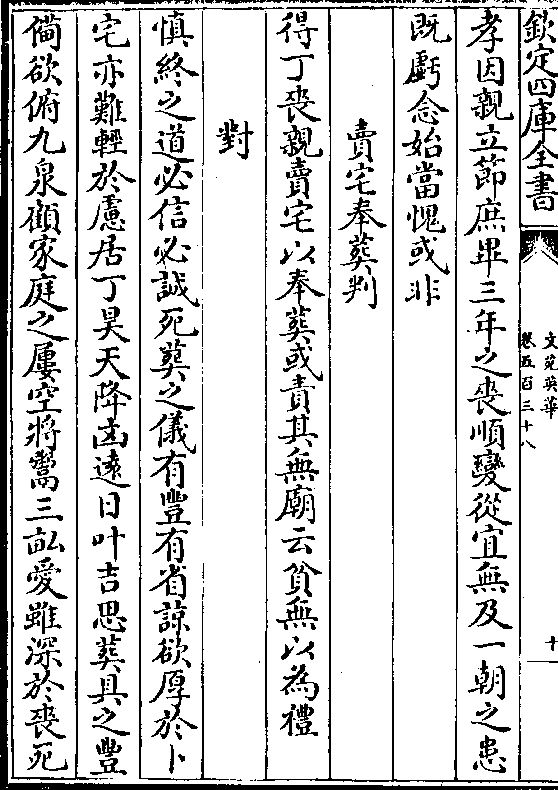 欽定四庫全書
文苑英華
卷五百三十八
十
孝因親立節庶畢三年之喪順變從宜無及一朝之患
既虧念始當愧或非
賣宅奉葬判
得丁喪親賣宅以奉葬或責其無廟云貧無以為禮
對
慎終之道必信必誠死葬之儀有豐有省諒欲厚於卜
宅亦難輕於慮居丁昊天降凶遠日叶吉思葬具之豐
備欲俯九泉顧家庭之屢空將鬻三畝愛雖深於喪死